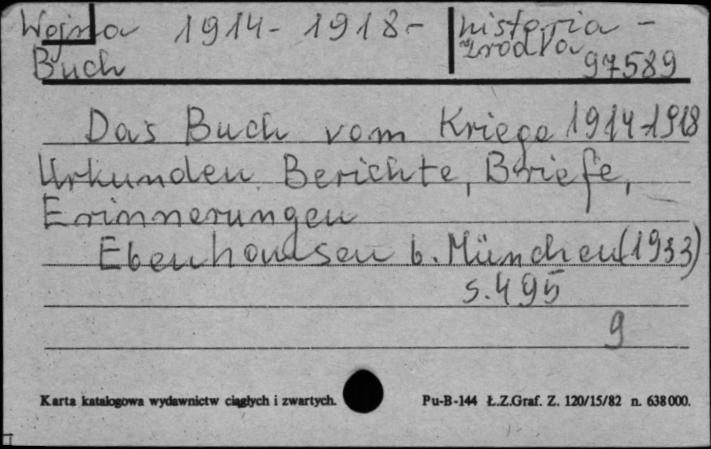 Wojna 1914-1918- historia -
źródła
Buch 97589
Das Buch vom Kriege 1914-1918
Urkunden Berichte, Briefe,
Erinnerungen
Ebenhausen b. München (1933)
s. 495
9
Karta katalogowa wydawnictw ciągłych i zwartych.
Pu-B-144 Ł.Z.Graf. Z. 120/15/82 n. 638000.